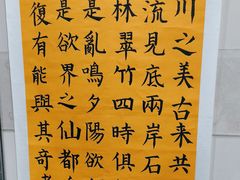 川之美古来共
流見底兩岸石
林翠竹四時俱
鳥亂鳴夕陽欲
是欲界之仙都
復有能與其奇